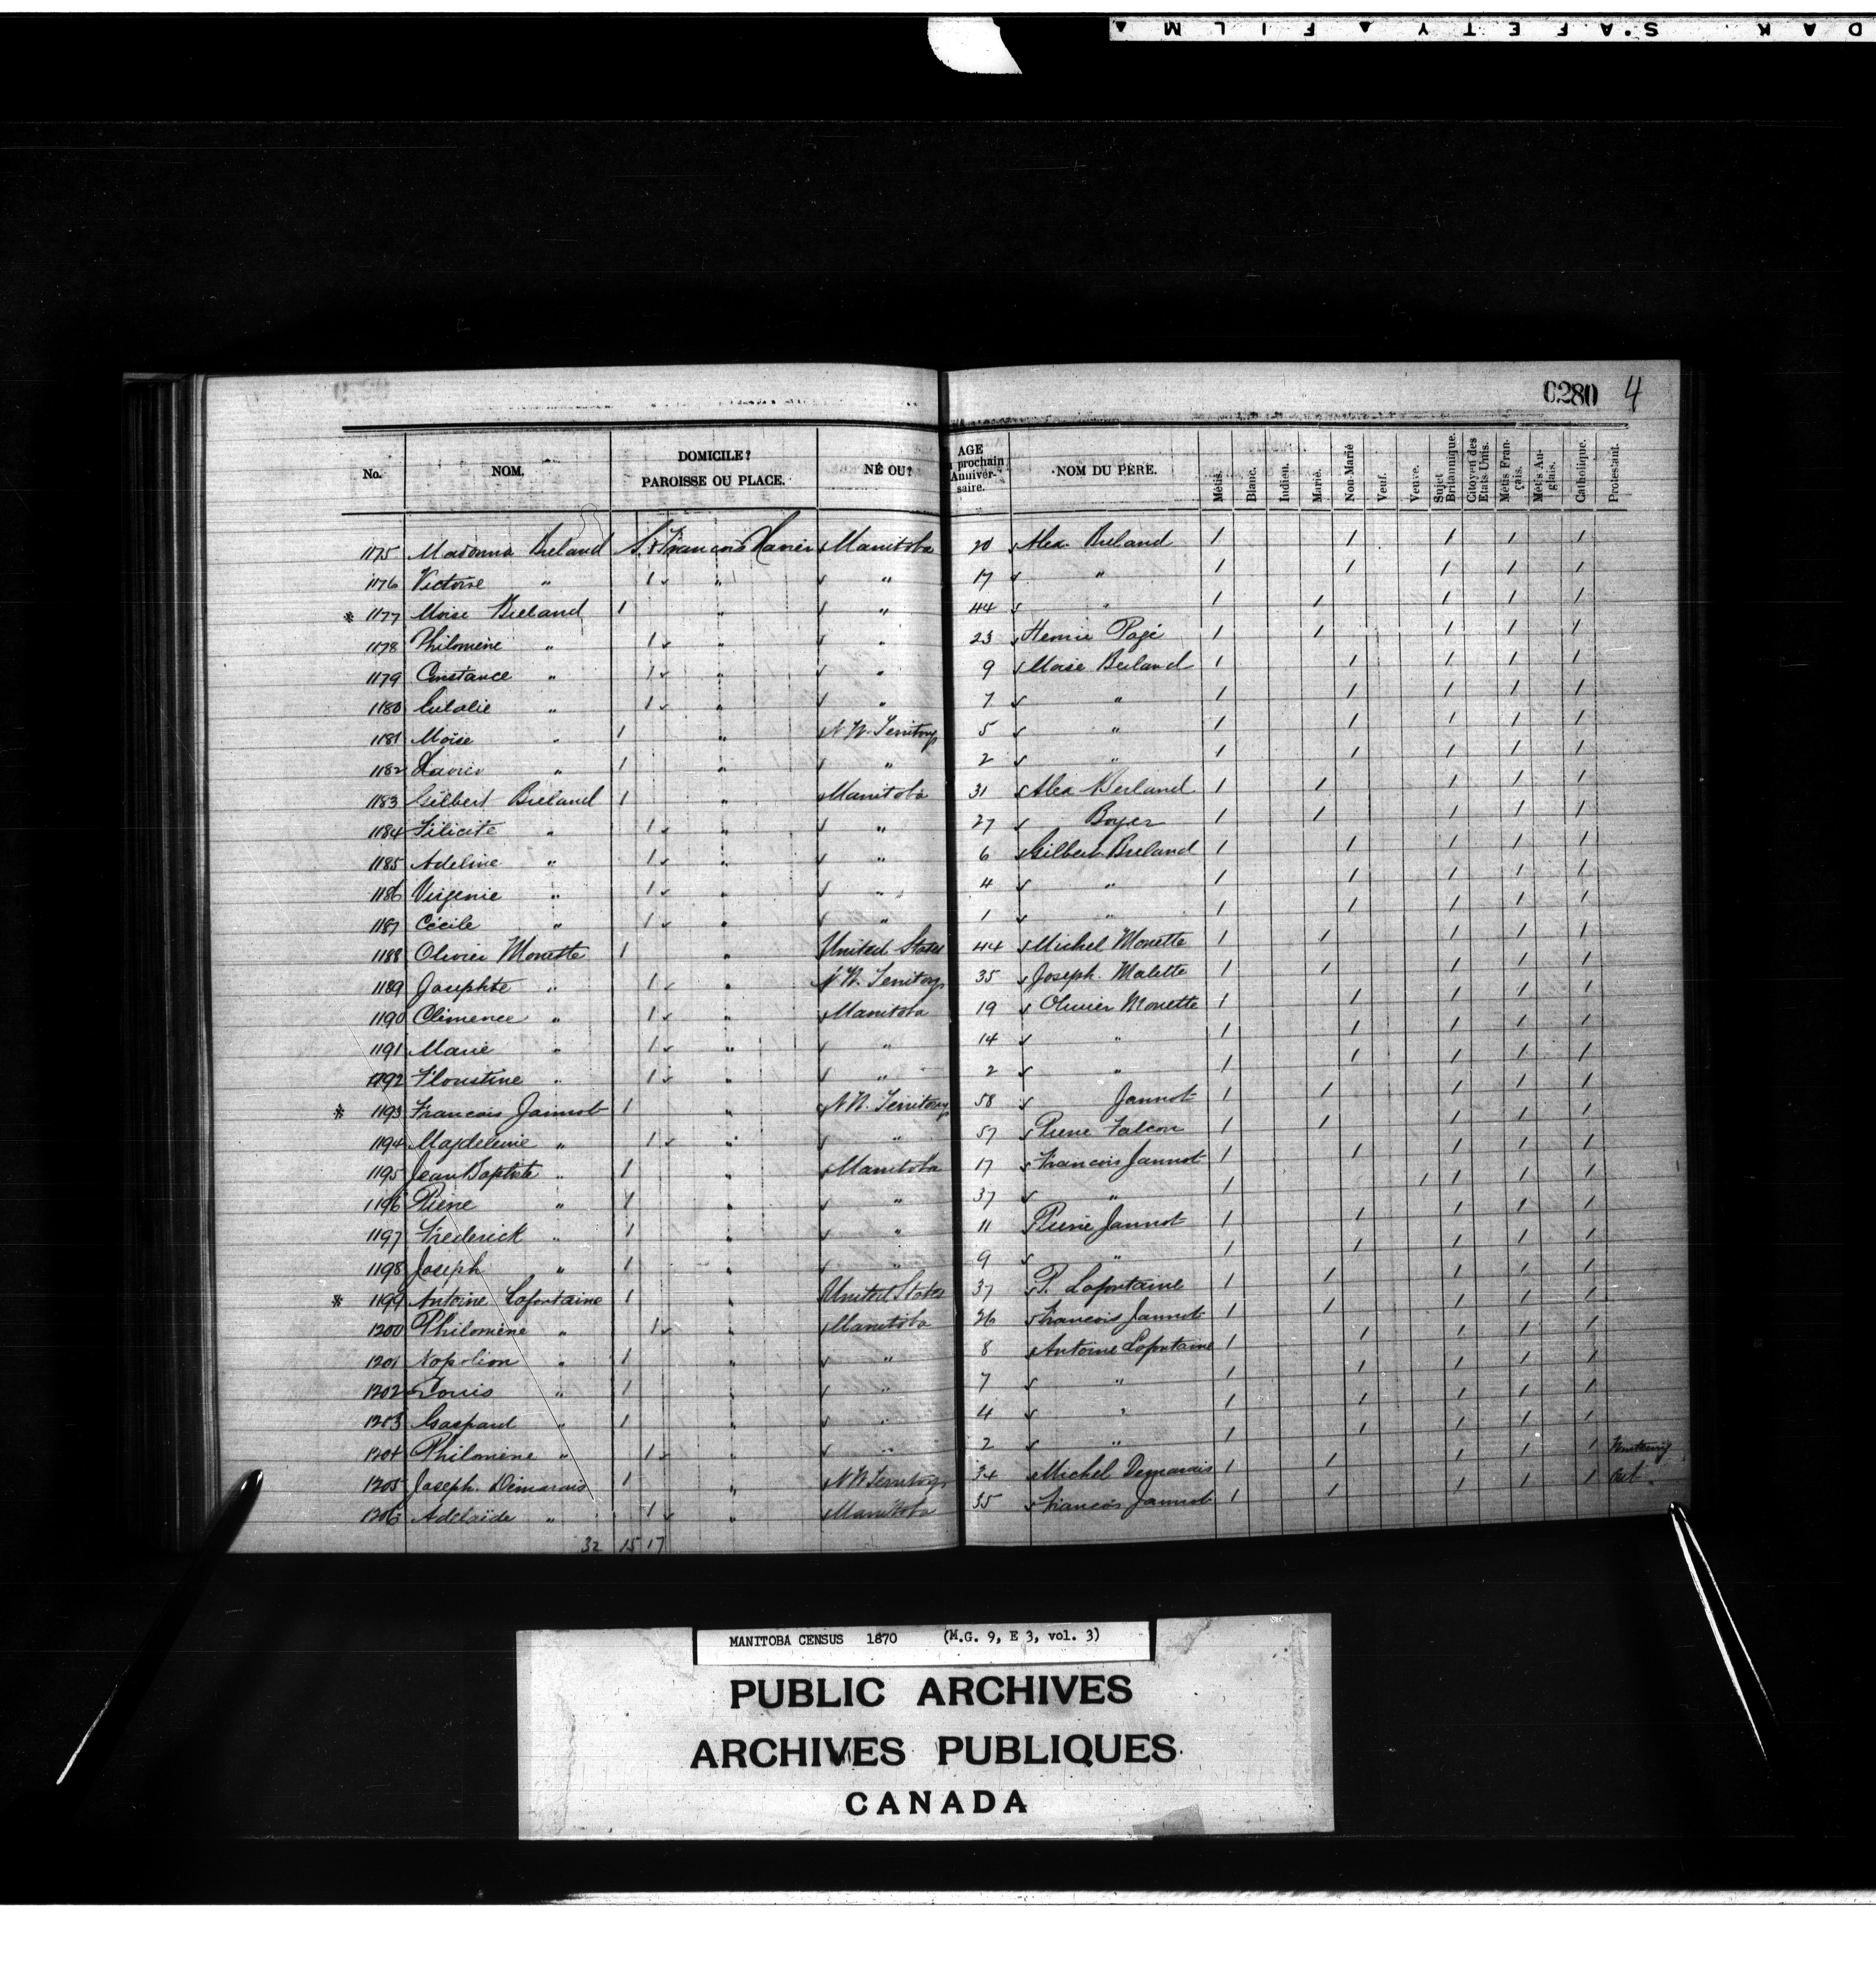 DAK SAFETY ▲ FILM ▲
0280 4
No. NOM. DOMICILE? PAROISSE OU PLACE. NÉ OU? AGE prochain Anniversaire. NOM DU PÈRE. Métis. Blanc. Indien. Marié. Non-Marié Veuf. Veuve. Sujet Britannique. Citoyen des Etats Unis. Métis Français. Métis Anglais. Catholique. Protestant.
1175 Madonna Breland St Francois Xavier Manitoba 20 Alex. Breland 1 1 1 1 1
1176 Victoire " 1 " " 17 " 1 1 1 1 1
* 1177 Moise Breland 1 " " 44 " 1 1 1 1 1
1178 Philomène " 1 " " 23 Henrie Pagé 1 1 1 1 1
1179 Constance " 1 " " 9 Moise Breland 1 1 1 1 1
1180 Eulalie " 1 " " 7 " 1 1 1 1 1
1181 Moïse " 1 " N.W. Territory 5 " 1 1 1 1 1
1182 Xavier " 1 " " 2 " 1 1 1 1 1
1183 Gilbert Breland 1 " Manitoba 31 Alex Breland 1 1 1 1 1
1184 Félicité " 1 " " 27 Boyer 1 1 1 1 1
1185 Adeline " 1 " " 6 Gilbert Breland 1 1 1 1 1
1186 Virgenie " 1 " " 4 " 1 1 1 1 1
1187 Cécile " 1 " " 1 " 1 1 1 1 1
1188 Olivier Monette 1 " United States 44 Michel Monette 1 1 1 1 1
1189 Josephte " 1 " N.W. Territory 35 Joseph Malette 1 1 1 1 1
1190 Clémence " 1 " Manitoba 19 Olivier Monette 1 1 1 1 1
1191 Marie " 1 " " 14 " 1 1 1 1 1
1192 Floustine " 1 " " 2 " 1 1 1 1 1
* 1193 Francois Jannot 1 " N.W. Territory 58 Jannot 1 1 1 1 1
1194 Majdeleine " 1 " " 57 Pierre Falcon 1 1 1 1 1
1195 Jean Baptiste " 1 " Manitoba 17 Francois Jannot 1 1 1 1 1
1196 Pierre " 1 " " 37 " 1 1 1 1 1
1197 Frederick " 1 " " 11 Pierre Jannot 1 1 1 1 1
1198 Joseph " 1 " " 9 " 1 1 1 1 1
* 1199 Antoine Lafontaine 1 " United States 37 P. Lafontaine 1 1 1 1 1
1200 Philomène " 1 " Manitoba 26 Francois Jannot 1 1 1 1 1
1201 Napoléon " 1 " " 8 Antoine Lafontaine 1 1 1 1 1
1202 Louis " 1 " " 7 " 1 1 1 1 1
1203 Gaspard " 1 " " 4 " 1 1 1 1 1
1204 Philomène " 1 " " 2 " 1 1 1 1 1
1205 Joseph Démarais 1 " N.W. Territory 34 Michel Demarais 1 1 1 1 1
1206 Adélaïde " 1 " Manitoba 35 Francois Jannot 1 1 1 1 1
32 15 17
MANITOBA CENSUS 1870 (M.G. 9, E 3, vol. 3)
PUBLIC ARCHIVES
ARCHIVES PUBLIQUES
CANADA